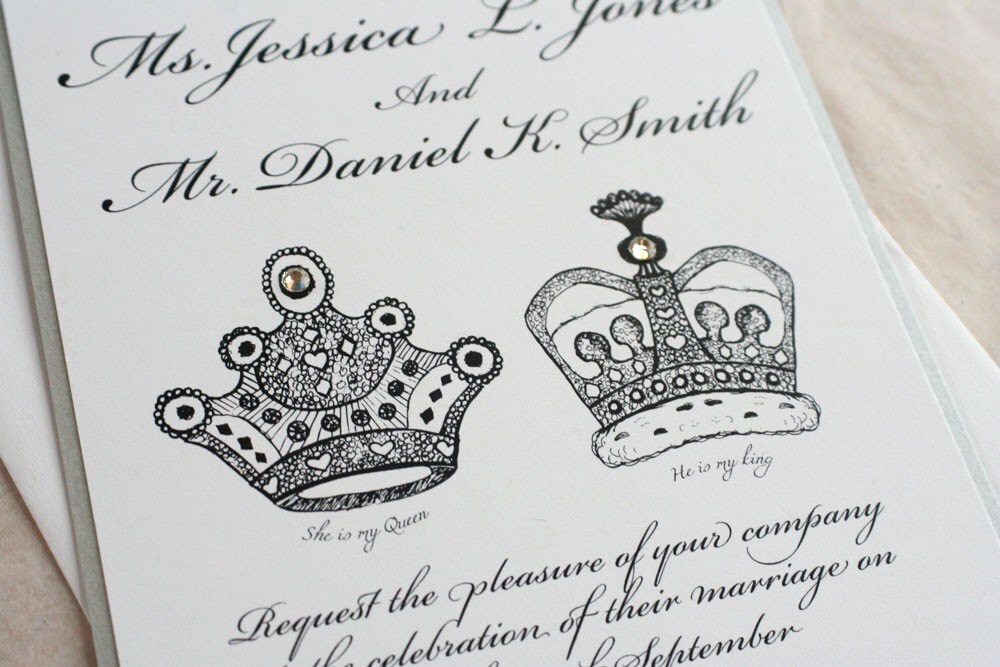 Ms. Jessica L. Jones
And
Mr. Daniel K. Smith
She is my Queen
He is my king
Request the pleasure of your company
the celebration of their marriage on
September